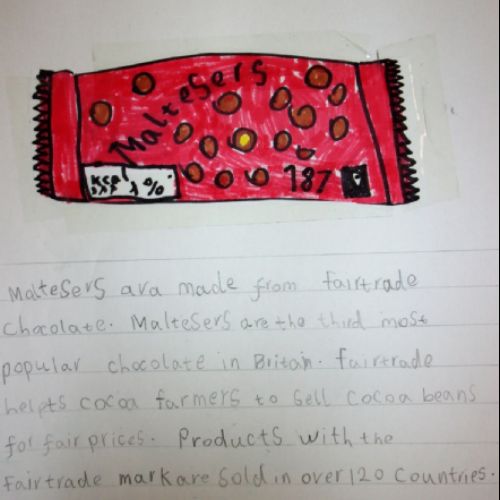 Maltesers
187
Maltesers ara made from fairtrade
Chocolate. Maltesers are the third most
popular chocolate in Britain. fairtrade
helpts cocoa farmers to sell cocoa beans
for fair prices. Products with the
fairtrade mark are sold in over 120 countries.